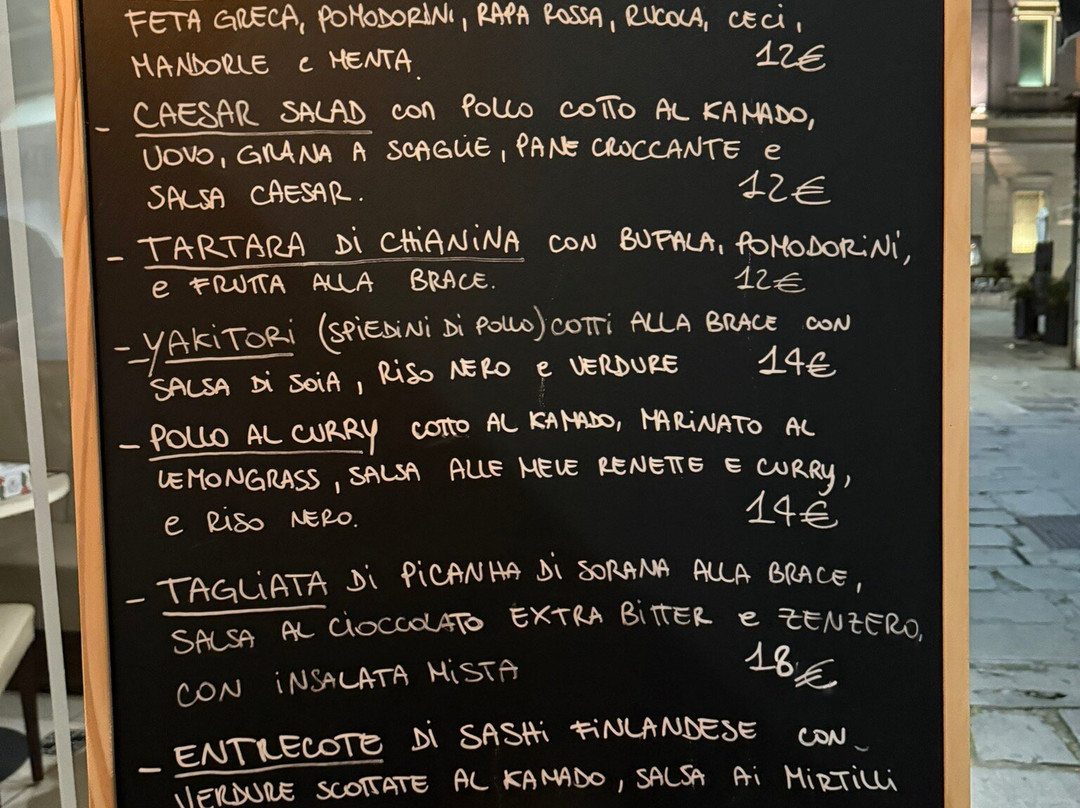 FETA GRECA, POMODORINI, RAPA ROSSA, RUCOLA, CECI,
MANDORLE e MENTA. 12€
- CAESAR SALAD CON POLLO COTTO AL KAMADO,
UOVO, GRANA A SCAGLIE, PANE CROCCANTE e
SALSA CAESAR. 12€
- TARTARA DI CHIANINA CON BUFALA, POMODORINI,
e FRUTTA ALLA BRACE. 12€
- YAKITORI (SPIEDINI DI POLLO) COTTI ALLA BRACE CON
SALSA DI SOIA, RISO NERO e VERDURE 14€
- POLLO AL CURRY COTTO AL KAMADO, MARINATO AL
LEMONGRASS, SALSA ALLE MELE RENETTE E CURRY,
e RISO NERO. 14€
- TAGLIATA DI PICANHA DI SORANA ALLA BRACE,
SALSA AL CIOCCOLATO EXTRA BITTER e ZENZERO,
CON INSALATA MISTA 18€
- ENTRECOTE DI SASHI FINLANDESE CON
VERDURE SCOTTATE AL KAMADO, SALSA AI MIRTILLI